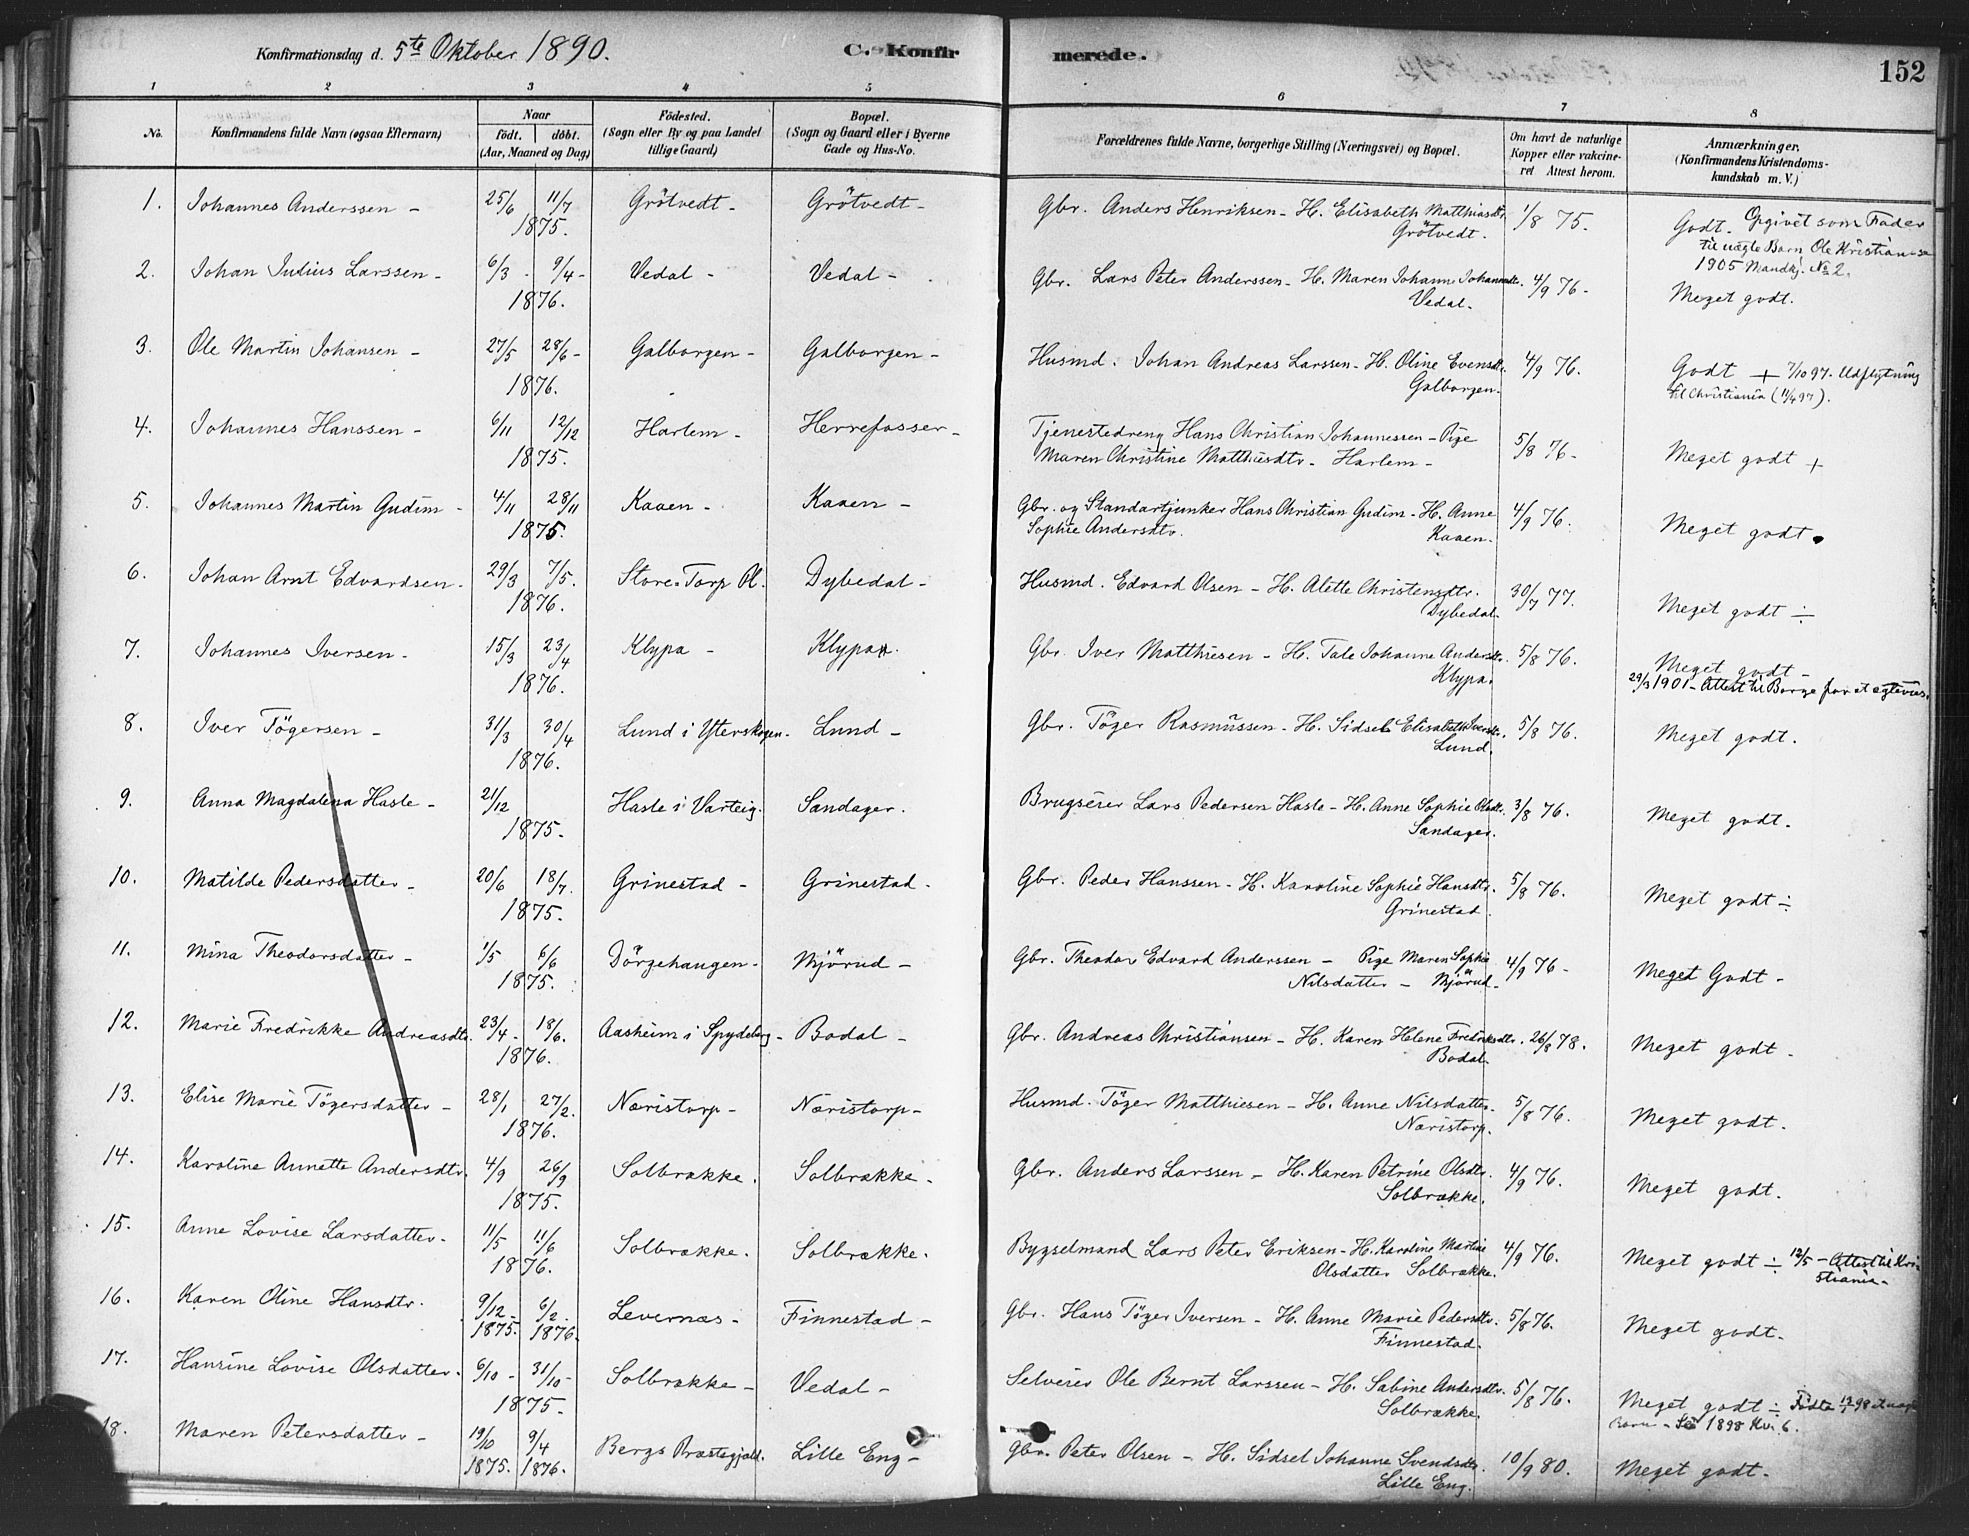 Konfirmationsdag d. 5te Oktober 1890. C. Konfirmerede. 152
1 2 3 4 5 6 7 8
No. Konfirmandens fulde Navn (ogsaa Efternavn) Naar födt. döbt. (Aar, Maaned og Dag) Födested. (Sogn eller By og paa Landet tillige Gaard) Bopæl. (Sogn og Gaard eller i Byerne Gade og Hus-No. Forældrenes fulde Navne, borgerlige Stilling (Næringsvei) og Bopæl. Om havt de naturlige Kopper eller vakcineret Attest herom. Anmærkninger. (Konfirmandens Kristendomskundskab m. V.)
1. Johannes Anderssen - 25/6 11/7 Grötvedt - Grötvedt - Gbr. Anders Henriksen - H. Elisabeth Matthiasdtr. 1/8 75. Godt. Opgivet som Fader
1875. Grötvedt. til uægte Barn Ole Kristian
1905 Mandkj. No 2.
2. Johan Julius Larssen - 6/3 - 9/4 - Vedal - Vedal - Gbr. Lars Peter Anderssen - H. Maren Johanne 4/9 76 - Meget godt.
1876. Vedal.
3. Ole Martin Johansen - 27/5 28/6 - Galborgen - Galborgen - Husmd. Johan Andreas Larssen - H. Oline Evensdtr. 4/9 76. Godt + 7/10 97. Udflytning
1876. Galborgen. til Christiania (11/4 97).
4. Johannes Hanssen - 6/11 12/12 Harlem - Herrefosser - Tjenestedreng Hans Christian Johannessen - Pige 5/8 76 - Meget godt +
1875. Maren Christine Matthiesdtr - Harlem -
5. Johannes Martin Gudim - 4/11 28/11 Kaaen - Kaaen - Gbr. og Standartjunker Hans Christian Gudim - H. Anne 4/9 76. Meget godt.
1875. Sophie Andersdtr. Kaaen.
6. Johan Arnt Edvardsen. 29/3 7/5. Store-Torp Öl. Dybedal - Husmd. Edvard Olsen - H. Alette Christensdtr. 30/7 77. Meget godt ÷
1876. Dybedal.
7. Johannes Iversen - 15/3 23/4 Klypa - Klypa. Gbr. Iver Matthiesen - H. Tale Johanne Andersdtr. 5/8 76. Meget godt -
1876. Klypa. 29/3 1901 - Attest til Borge for at ægtevies.
8. Iver Tögersen - 31/3 30/4 Lund i Yterskogen - Lund - Gbr. Töger Rasmussen - H. Sidsel Elisabeth Iversdtr. 5/8 76. Meget godt.
1876. Lund.
9. Anna Magdalena Hasle - 21/12 Hasle i Varteig. Sandager. Brugseier Lars Pedersen Hasle - H. Anne Sophie Olsdtr. 3/8 76. Meget godt.
1875. Sandager.
10. Matilde Pedersdatter - 20/6 18/7. Grinestad - Grinestad. Gbr. Peder Hanssen - H. Karoline Sophie Hansdtr. 5/8 76. Meget godt ÷
1875. Grinestad.
11. Mina Theodorsdatter - 1/5 6/6 Dörgehaugen - Mjörud - Gbr. Theodor Edvard Anderssen - Pige Maren Sophie 4/9 76 - Meget Godt -
1875. Nilsdatter - Mjörud -
12. Marie Fredrikke Andreasdtr. 23/4 - 18/6. Aasheim i Spydeberg - Bodal - Gbr. Andreas Christiansen - H. Karen Helene Fredriksdtr. 26/8 78. Meget godt -
1876. Bodal.
13. Elise Marie Tögersdatter - 28/1 27/2. Næristorp - Næristorp - Husmd. Töger Matthiesen - H. Anne Nilsdatter. 5/8 76. Meget godt.
1876. Næristorp.
14. Karoline Annette Andersdtr. 4/9 26/9 Solbrække. Solbrække. Gbr. Anders Larssen - H. Karen Petrine Olsdtr. 4/9 76. Meget godt.
1875. Solbrække.
15. Anne Lovise Larsdatter - 11/5 11/6 Solbrække. Solbrække. Bygselmand Lars Peter Eriksen - H. Karoline Martine 4/9 76. Meget godt ÷ 12/5 - Attest til Kri-
1876. Olsdatter Solbrække. stiania -
16. Karen Oline Hansdtr. 9/12 - 6/2. Levernæs - Finnestad - Gbr. Hans Töger Iversen - H. Anne Marie Pedersdtr. 5/8 76. Meget godt.
1875. 1876. Finnestad.
17. Hansine Lovise Olsdatter. 6/10 - 31/10 - Solbrække - Vedal - Selveier Ole Bernt Larssen - H. Sabine Andersdtr. 5/8 76. Meget godt ÷ Födte 98
1875. Solbrække. Barn - 1898 Kvi. 6.
18. Maren Petersdatter - 19/10 9/4 Bergs Præstegjæld. Lille Eng - Gbr. Peter Olsen - H. Sidsel Johanne Svendsdtr. 10/9 80. Meget godt.
1875. 1876. Lille Eng.